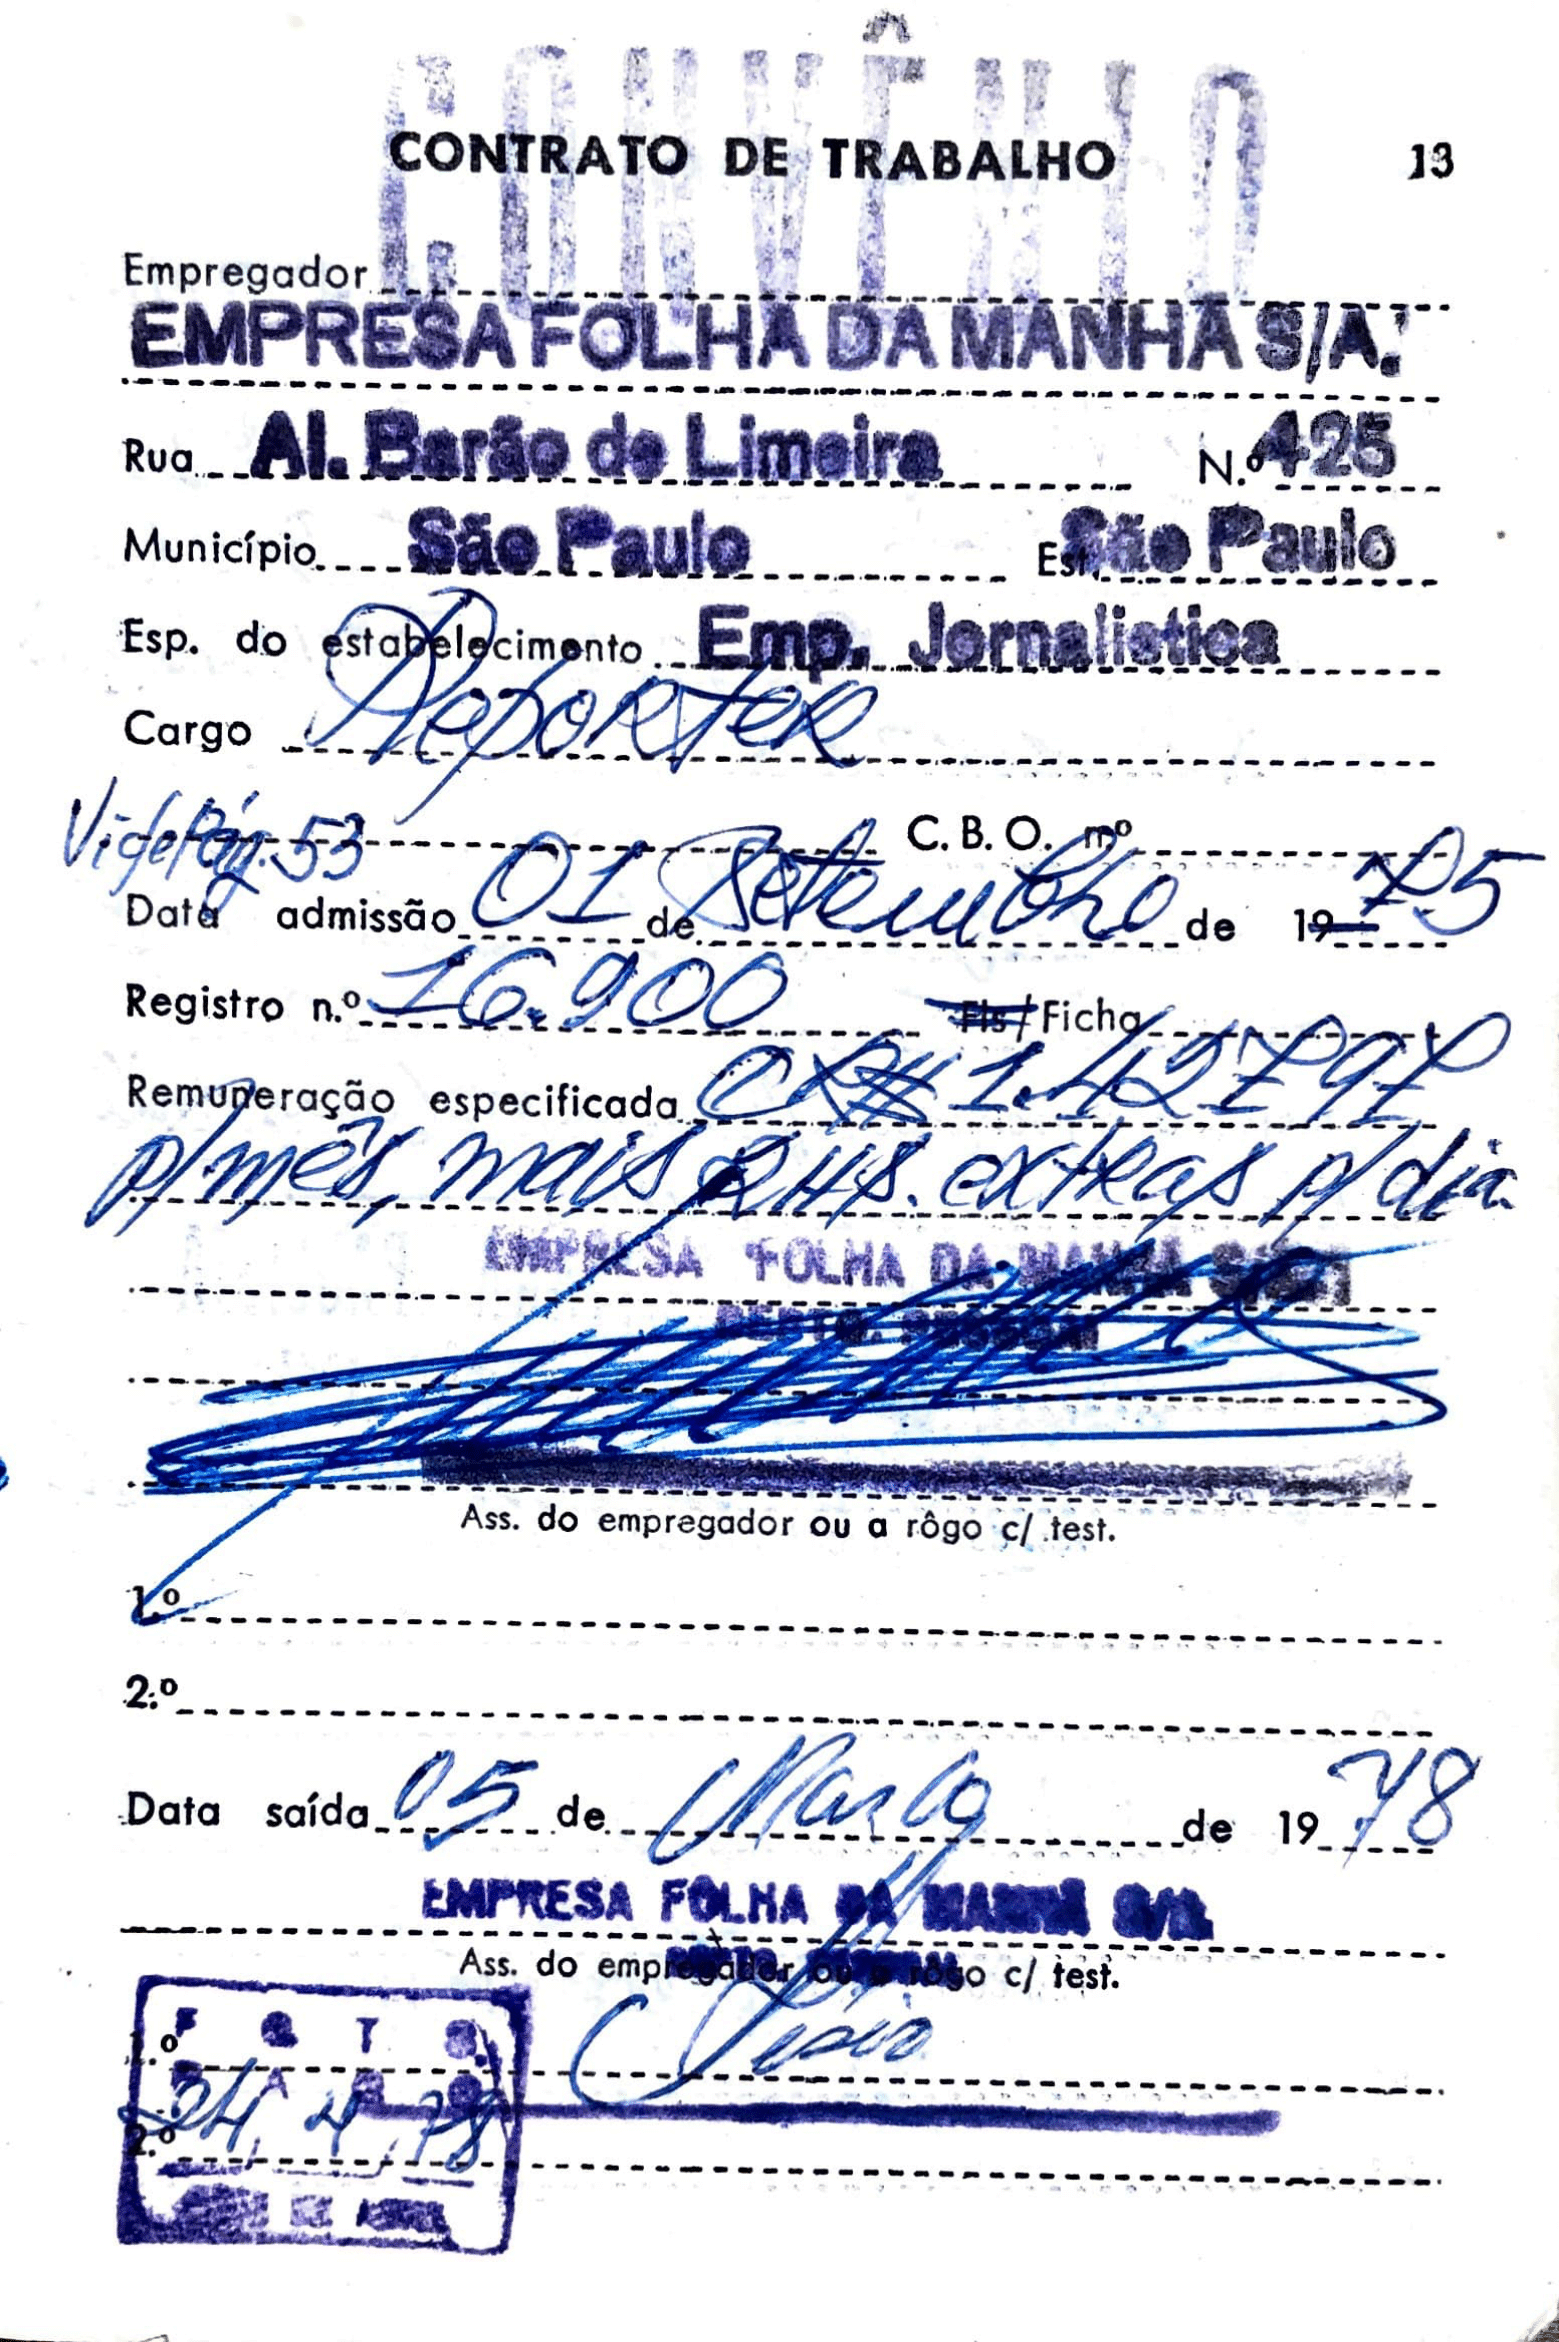 CONVÊNIO
CONTRATO DE TRABALHO 13
Empregador
EMPRESA FOLHA DA MANHÃ S/A.
Rua Al. Barão de Limeira N.º 425
Município São Paulo Est. São Paulo
Esp. do estabelecimento Emp. Jornalistica
Cargo Reporter
Vide Pág. 53 C. B. O. nº
Data admissão 01 de Setembro de 1975
Registro n.º 16.900 Fls/Ficha
Remuneração especificada CR$ 1.427,97
p/mês, mais 2 HS. extras p/ dia.
EMPRESA FOLHA DA MANHÃ S/A
DEPTO. PESSOAL
Ass. do empregador ou a rôgo c/ test.
1.º
2.º
Data saída 05 de Março de 1978
EMPRESA FOLHA DA MANHÃ S/A
Ass. do empregador ou a rôgo c/ test.
F G T S
1.º
24 4 78
2.º